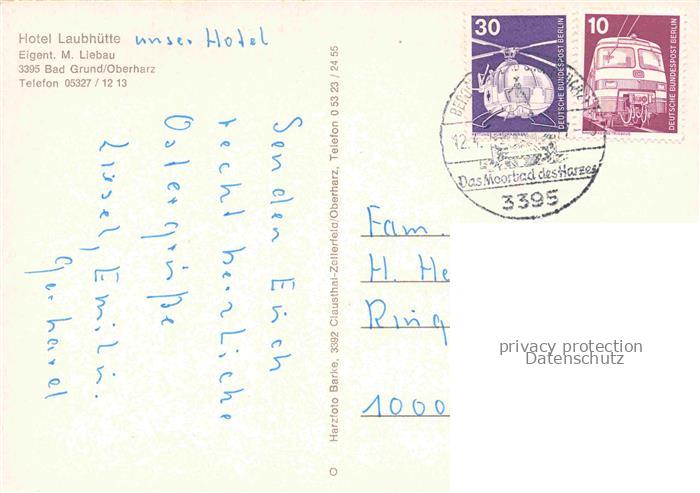 Hotel Laubhütte unser Hotel
Eigent. M. Liebau
3395 Bad Grund/Oberharz
Telefon 05327 / 12 13
Senden Euch
recht herzliche
Ostergrüße
Liesel, Emil u.
Gerhard
Harzfoto Barke, 3392 Clausthal-Zellerfeld/Oberharz, Telefon 0 53 23 / 24 55
30
DEUTSCHE BUNDESPOST BERLIN
10
DEUTSCHE BUNDESPOST BERLIN
12.4.
Das Moorbad des Harzes
3395
Fam.
H. He
Ring
1000
privacy protection
Datenschutz